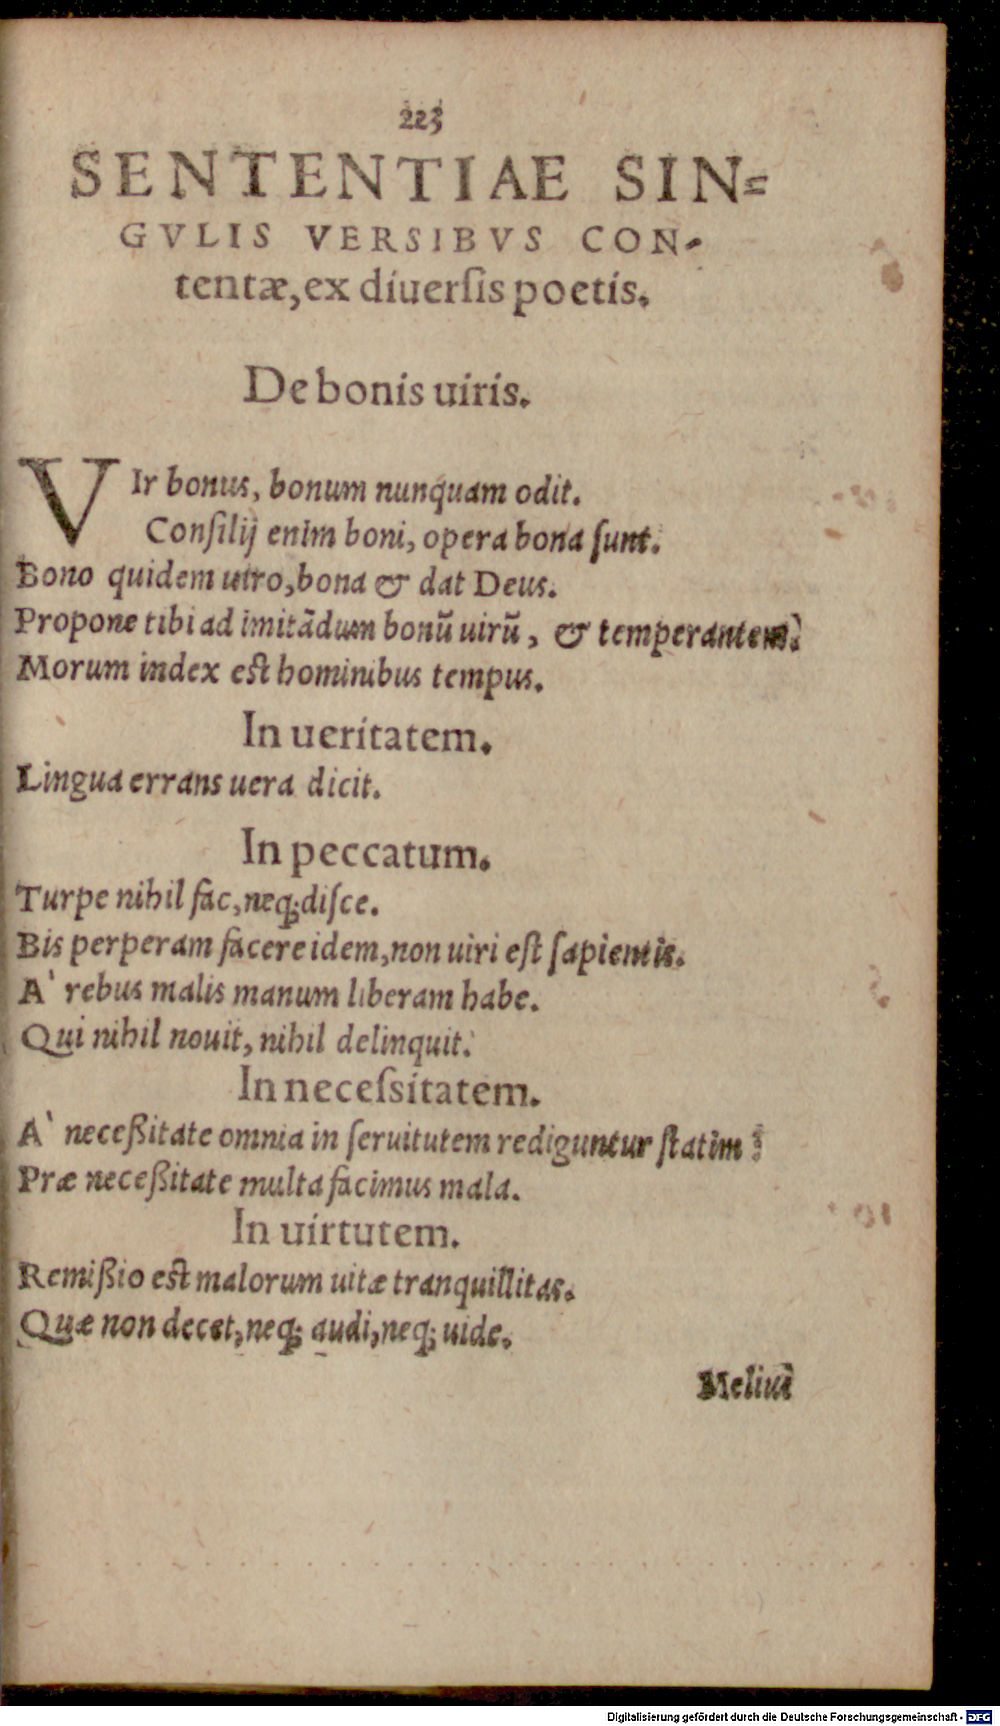 223
SENTENTIAE SIN=
GVLIS VERSIBVS CON-
tentæ, ex diuersis poetis.
De bonis uiris.
VIr bonus, bonum nunquam odit.
Consilij enim boni, opera bona sunt.
Bono quidem uiro, bona & dat Deus.
Propone tibi ad imitādum bonū uirū, & temperantem.
Morum index est hominibus tempus.
In ueritatem.
Lingua errans uera dicit.
In peccatum.
Turpe nihil fac, neq; disce.
Bis perperam facere idem, non uiri est sapientis.
A` rebus malis manum liberam habe.
Qui nihil nouit, nihil delinquit.
In necessitatem.
A` neceßitate omnia in seruitutem rediguntur statim.
Præ neceßitate multa facimus mala.
In uirtutem.
Remißio est malorum uitæ tranquillitas.
Quæ non decet, neq; audi, neq; uide.
Melius
Digitalisierung gefördert durch die Deutsche Forschungsgemeinschaft - DFG